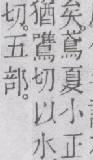 矣。蔦夏小正
猶鷕切以水
切。五部。